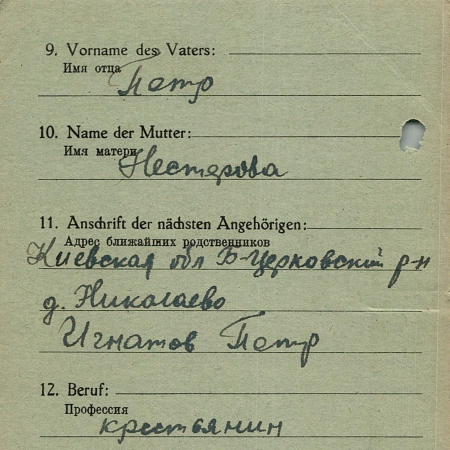 9. Vorname des Vaters:
Имя отца
Петр
10. Name der Mutter:
Имя матери
Нестерова
11. Anschrift der nächsten Angehörigen:
Адрес ближайших родственников
Киевская обл Б-Церковский р-н
д. Николаево
Игнатов Петр
12. Beruf:
Профессия
крестьянин